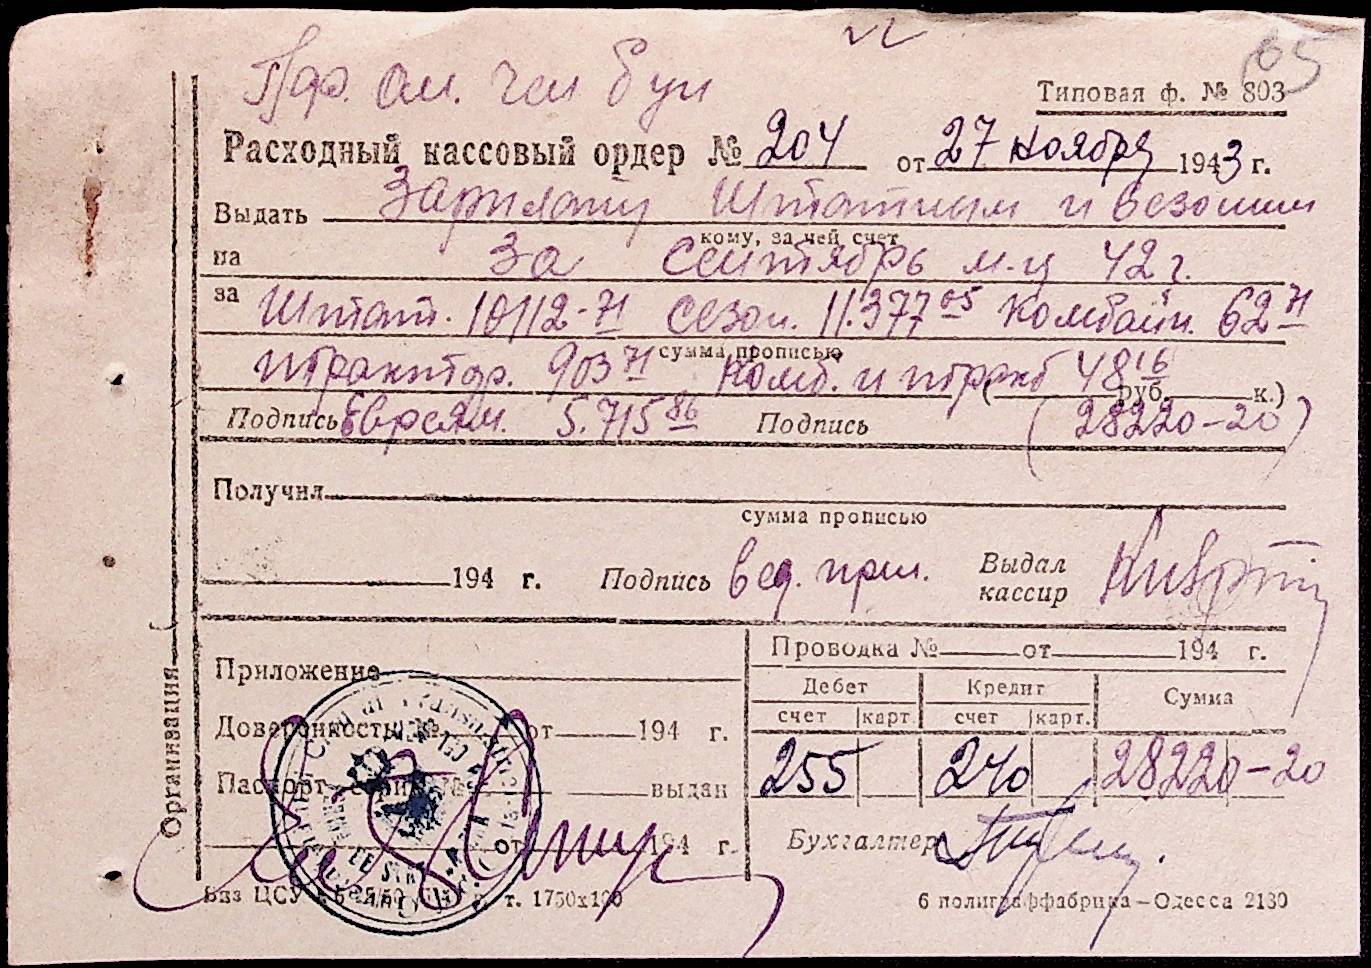 65
Типовая ф. № 803
Расходный кассовый ордер № 204 от 27 ноября 1943 г.
Выдать Зарплату Штатным и
кому, за чей счет
на За сентябрь м-ц 42 г.
за Штат. 10112-71 сезон. 11.377 05 Комбайн. 62 71
сумма прописью
трактор. 903 71 Комб. и тракт 48 16 (руб. к.)
Подпись Евреям. 5.715 86 Подпись (28220-20)
Получил
сумма прописью
194 г. Подпись вед. прил. Выдал кассир
Организация
Приложение
Проводка № от 194 г.
Дебет Кредит Сумма
счет карт. счет карт.
Доверенность № от 194 г.
Паспорт серия № выдан
255 240 28220-20
от 194 г.
Бухгалтер
т. 1750х100
6 полиграффабрика—Одесса 2180